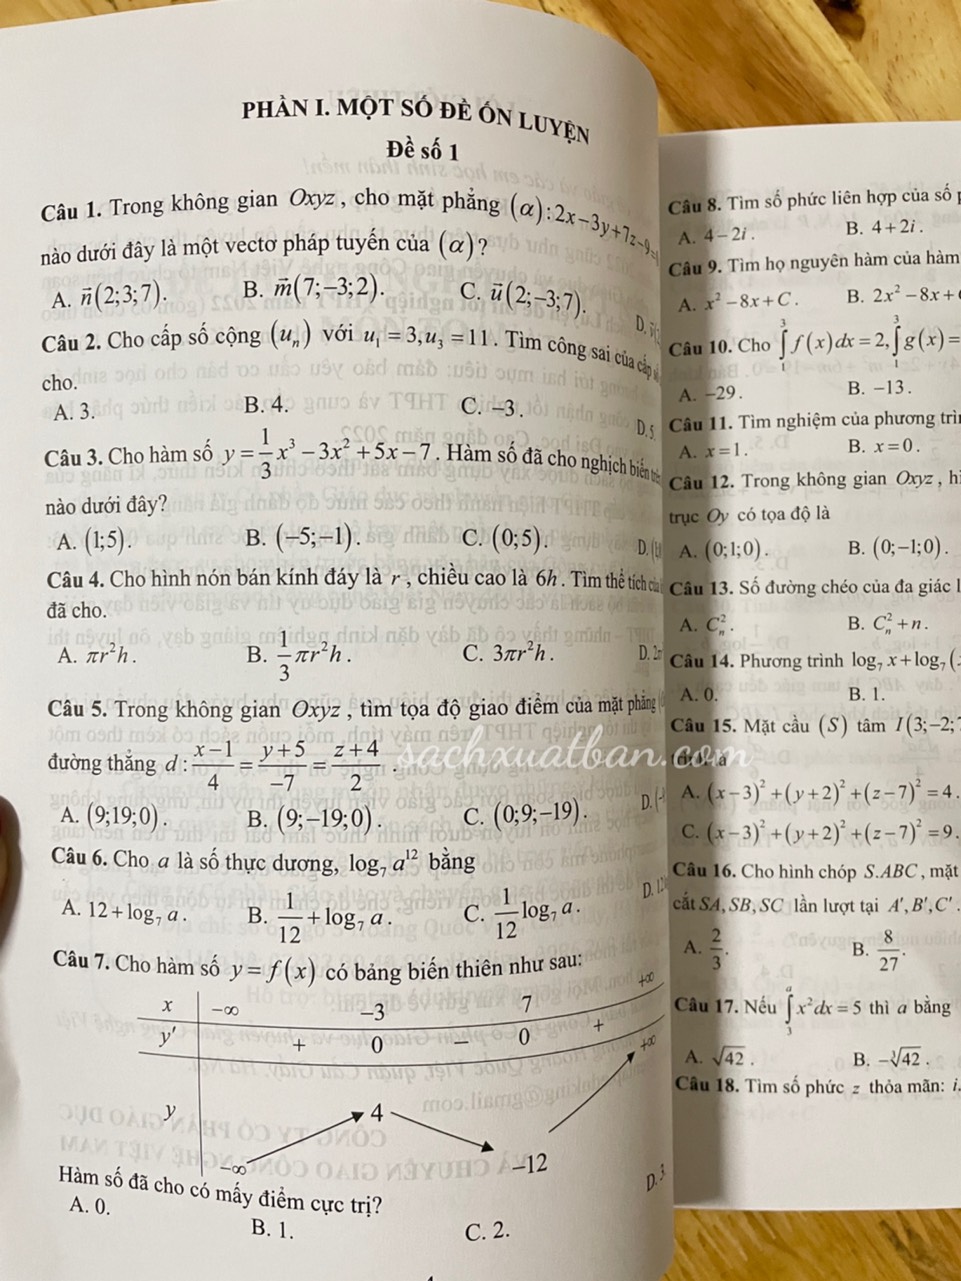 PHẦN I. MỘT SỐ ĐỀ ÔN LUYỆN
Đề số 1
Câu 1. Trong không gian Oxyz, cho mặt phẳng (α): 2x−3y+7z−9=
nào dưới đây là một vectơ pháp tuyến của (α)?
A. n⃗(2;3;7). B. m⃗(7;−3;2). C. u⃗(2;−3;7). D.
Câu 2. Cho cấp số cộng (uₙ) với u₁ = 3, u₃ = 11. Tìm công sai của cấp
cho.
A. 3. B. 4. C. −3. D. 5
Câu 3. Cho hàm số y = 1/3 x³ − 3x² + 5x − 7. Hàm số đã cho nghịch biến
nào dưới đây?
A. (1;5). B. (−5;−1). C. (0;5). D.
Câu 4. Cho hình nón bán kính đáy là r, chiều cao là 6h. Tìm thể tích của
đã cho.
A. πr²h. B. 1/3 πr²h. C. 3πr²h. D. 2π
Câu 5. Trong không gian Oxyz, tìm tọa độ giao điểm của mặt phẳng
đường thẳng d: (x−1)/4 = (y+5)/−7 = (z+4)/2.
A. (9;19;0). B. (9;−19;0). C. (0;9;−19). D.
Câu 6. Cho a là số thực dương, log₇ a¹² bằng
A. 12+log₇ a. B. 1/12 + log₇ a. C. 1/12 log₇ a. D. 12
Câu 7. Cho hàm số y = f(x) có bảng biến thiên như sau:
x −∞ −3 7 +∞
y′ + 0 − 0 +
y −∞ 4 −12 +∞
Hàm số đã cho có mấy điểm cực trị?
A. 0. B. 1. C. 2. D. 3
Câu 8. Tìm số phức liên hợp của số
A. 4−2i. B. 4+2i.
Câu 9. Tìm họ nguyên hàm của hàm
A. x²−8x+C. B. 2x²−8x+
Câu 10. Cho ∫₁³ f(x)dx = 2, ∫₁³ g(x) =
A. −29. B. −13.
Câu 11. Tìm nghiệm của phương
A. x=1. B. x=0.
Câu 12. Trong không gian Oxyz,
trục Oy có tọa độ là
A. (0;1;0). B. (0;−1;0).
Câu 13. Số đường chéo của đa giác
A. Cₙ². B. Cₙ²+n.
Câu 14. Phương trình log₇ x + log₇(
A. 0. B. 1.
Câu 15. Mặt cầu (S) tâm I(3;−2;
sachxuatban.com
A. (x−3)²+(y+2)²+(z−7)²=4.
C. (x−3)²+(y+2)²+(z−7)²=9.
Câu 16. Cho hình chóp S.ABC, mặt
cắt SA, SB, SC lần lượt tại A′, B′, C′.
A. 2/3. B. 8/27.
Câu 17. Nếu ∫₃ᵃ x²dx = 5 thì a bằng
A. √42. B. −∛42.
Câu 18. Tìm số phức z thỏa mãn: i.